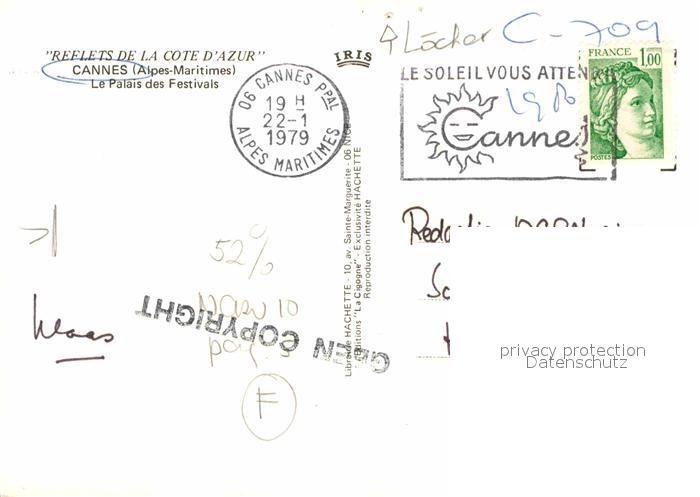 "REFLETS DE LA COTE D'AZUR"
CANNES (Alpes-Maritimes)
Le Palais des Festivals
IRIS
Löcher C-709
06 CANNES PPAL
19 H
22-1
1979
ALPES MARITIMES
LE SOLEIL VOUS ATTEND
Cannes
FRANCE
1,00
POSTES
Librairie HACHETTE - 10, av. Sainte-Marguerite - 06 NICE
Editions "La Cigogne" - Exclusivité HACHETTE
Reproduction interdite
52%
pag.
F
COPYRIGHT
privacy protection
Datenschutz